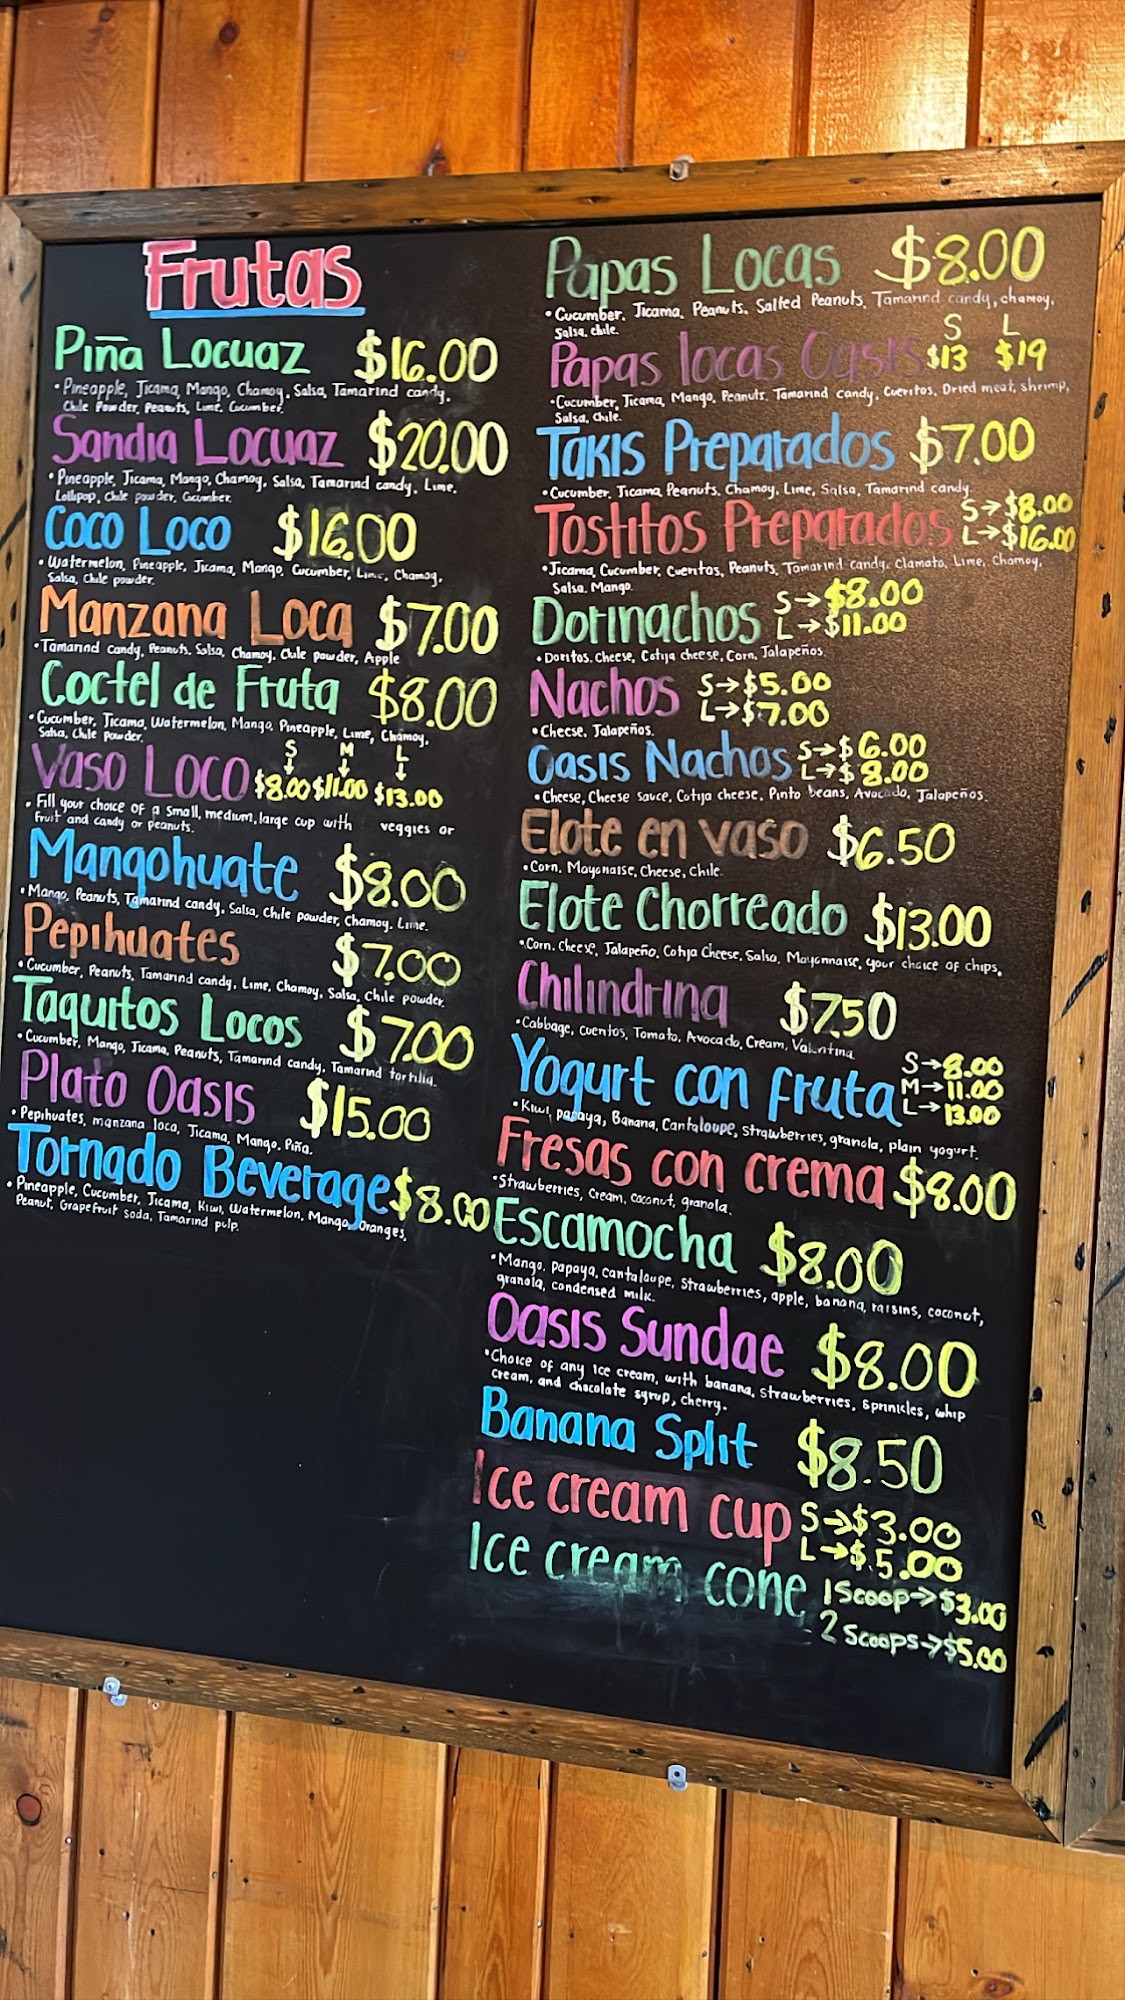 Frutas
Piña Locuaz $16.00
• Pineapple, Jicama, Mango, Chamoy, Salsa, Tamarind candy,
Chile Powder, Peanuts, Lime, Cucumber.
Sandia Locuaz $20.00
• Pineapple, Jicama, Mango, Chamoy, Salsa, Tamarind candy, Lime,
Lollipop, Chile powder, Cucumber.
Coco Loco $16.00
• Watermelon, Pineapple, Jicama, Mango, Cucumber, Lime, Chamoy,
Salsa, Chile powder.
Manzana Loca $7.00
• Tamarind candy, Peanuts, Salsa, Chamoy, Chile powder, Apple
Coctel de Fruta $8.00
• Cucumber, Jicama, Watermelon, Mango, Pineapple, Lime, Chamoy,
Salsa, Chile powder.
S M L
Vaso Loco $8.00 $11.00 $13.00
• Fill your choice of a small, medium, large cup with veggies or
fruit and candy or peanuts.
Mangohuate $8.00
• Mango, Peanuts, Tamarind candy, Salsa, Chile powder, Chamoy, Lime.
Pepihuates $7.00
• Cucumber, Peanuts, Tamarind candy, Lime, Chamoy, Salsa, Chile powder.
Taquitos Locos $7.00
• Cucumber, Mango, Jicama, Peanuts, Tamarind candy, Tamarind tortilla.
Plato Oasis $15.00
• Pepihuates, manzana loca, Jicama, Mango, Piña.
Tornado Beverage $8.00
• Pineapple, Cucumber, Jicama, Kiwi, Watermelon, Mango, Oranges,
Peanut, Grapefruit soda, Tamarind pulp.
Papas Locas $8.00
• Cucumber, Jicama, Peanuts, Salted Peanuts, Tamarind candy, chamoy,
Salsa, chile.
S L
Papas locas Oasis $13 $19
• Cucumber, Jicama, Mango, Peanuts, Tamarind candy, Cueritos, Dried meat, shrimp,
Salsa, Chile.
Takis Preparados $7.00
• Cucumber, Jicama, Peanuts, Chamoy, Lime, Salsa, Tamarind candy
Tostitos Preparados S→$8.00
L→$16.00
• Jicama, Cucumber, Cueritos, Peanuts, Tamarind candy, Clamato, Lime, Chamoy,
Salsa, Mango.
Dorinachos S→$8.00
L→$11.00
• Doritos, Cheese, Cotija cheese, Corn, Jalapeños
Nachos S→$5.00
L→$7.00
• Cheese, Jalapeños.
Oasis Nachos S→$6.00
L→$8.00
• Cheese, Cheese sauce, Cotija cheese, Pinto beans, Avocado, Jalapeños
Elote en vaso $6.50
• Corn, Mayonaise, Cheese, Chile.
Elote Chorreado $13.00
• Corn, Cheese, Jalapeño, Cotija Cheese, Salsa, Mayonnaise, your choice of chips.
Chilindrina $7.50
• Cabbage, cueritos, Tomato, Avocado, Cream, Valentina
Yogurt con fruta S→8.00
M→11.00
L→13.00
• Kiwi, papaya, Banana, Cantaloupe, strawberries, granola, plain yogurt.
Fresas con crema $8.00
• Strawberries, Cream, coconut, granola.
Escamocha $8.00
• Mango, papaya, cantaloupe, strawberries, apple, banana, raisins, coconut,
granola, condensed milk.
Oasis Sundae $8.00
• Choice of any ice cream, with banana, strawberries, sprinkles, whip
cream, and chocolate syrup, cherry.
Banana Split $8.50
Ice cream cup S→$3.00
L→$.5.00
Ice cream cone 1 Scoop→$3.00
2 Scoops→$5.00